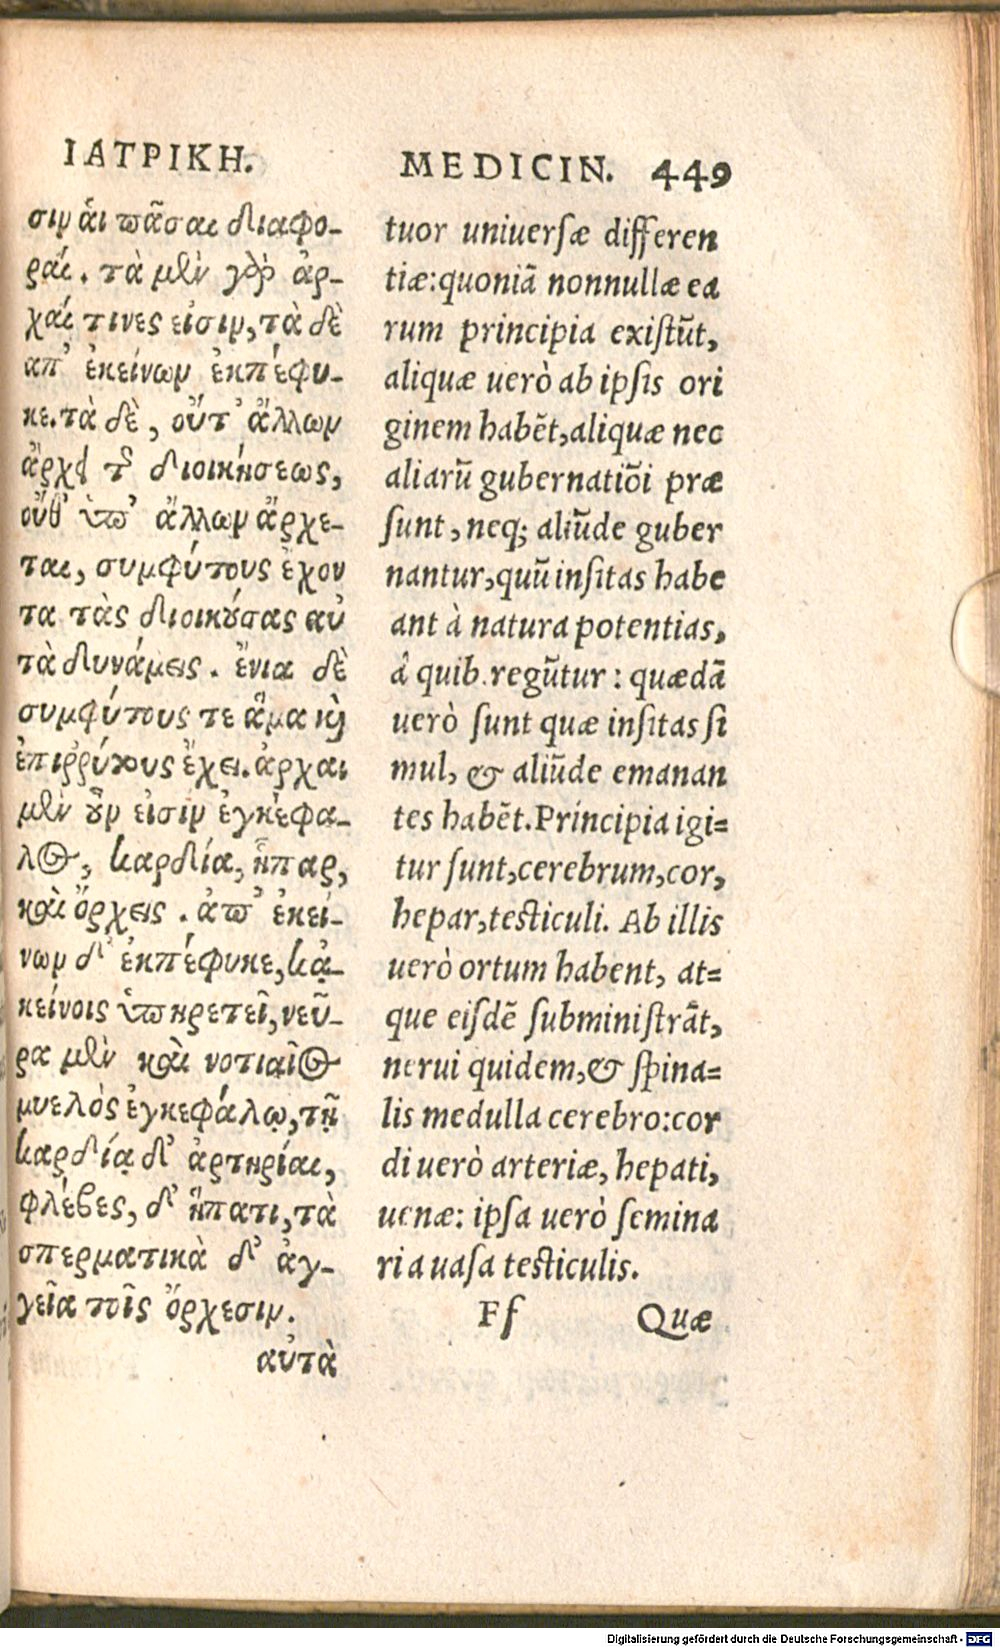 ΙΑΤΡΙΚΗ.
σιν ἁι πᾶσαι διαφο-
ραί. τὰ μὲν γὰρ ἀρ-
χαί τινες εἰσιν, τὰ δὲ
ἀπ' ἐκείνων ἐκπέφυ-
κε. τὰ δὲ, οὔτ' ἄλλων
ἄρχει τῆς διοικήσεως,
οὔθ' ὑπ' ἄλλων ἄρχε-
ται, συμφύτους ἔχον
τα τὰς διοικούσας αὐ
τὰ δυνάμεις. ἔνια δὲ
συμφύτους τε ἅμα καὶ
ἐπιῤῥύτους ἔχει. ἀρχαι
μὲν οὖν εἰσιν ἐγκέφα-
λος, καρδία, ἧπαρ,
καὶ ὄρχεις. ἀπ' ἐκεί-
νων δ' ἐκπέφυκε, κᾀ-
κείνοις ὑπηρετεῖ, νεῦ-
ρα μὲν καὶ νοτιαῖος
μυελὸς ἐγκεφάλῳ, τῇ
καρδίᾳ δ' ἀρτηρίαι,
φλέβες, δ' ἥπατι, τὰ
σπερματικὰ δ' ἀγ-
γεῖα τοῖς ὄρχεσιν.
αὐτὰ
MEDICIN. 449
tuor uniuersæ differen
tiæ: quoniã nonnullæ ea
rum principia existũt,
aliquæ uerò ab ipsis ori
ginem habẽt, aliquæ nec
aliarũ gubernatiõi præ
sunt, neq; aliũde guber
nantur, quũ insitas habe
ant à natura potentias,
â quib. regũtur: quædã
uerò sunt quæ insitas si
mul, & aliũde emanan
tes habẽt. Principia igi=
tur sunt, cerebrum, cor,
hepar, testiculi. Ab illis
uerò ortum habent, at=
que eisdẽ subministrãt,
nerui quidem, & spina=
lis medulla cerebro: cor
di uerò arteriæ, hepati,
uenæ: ipsa uerò semina
ria uasa testiculis.
Ff Quæ
Digitalisierung gefördert durch die Deutsche Forschungsgemeinschaft - DFG